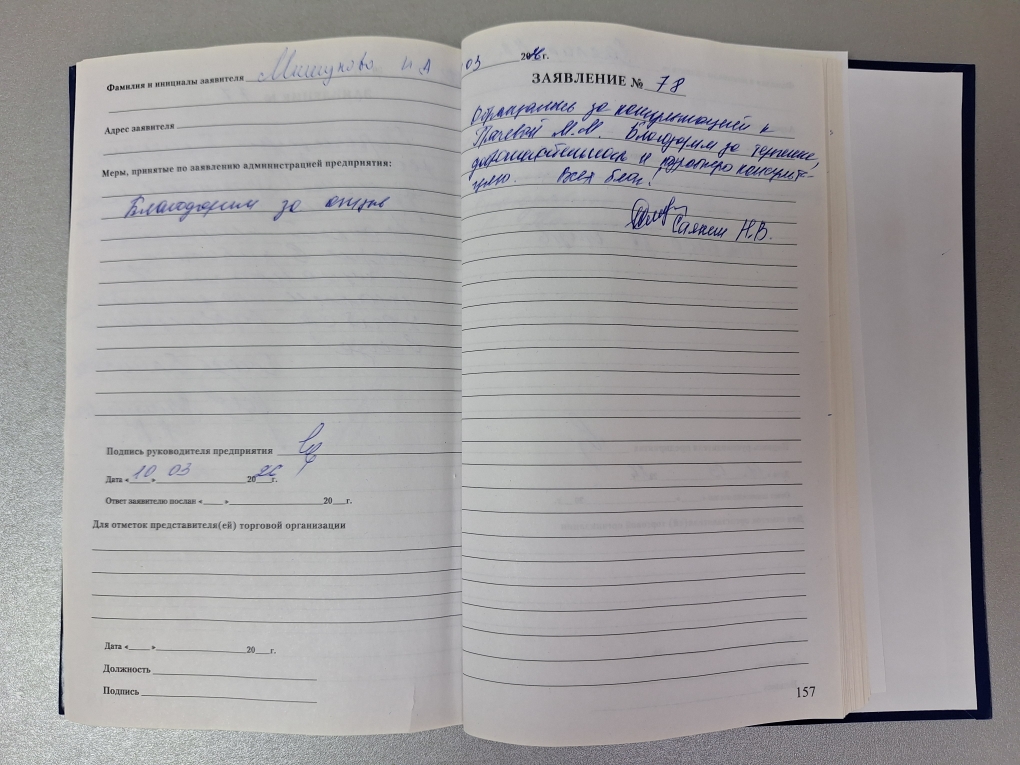 Фамилия и инициалы заявителя Мишукова И А
Адрес заявителя
Меры, принятые по заявлению администрацией предприятия:
Благодарим за отзыв
Подпись руководителя предприятия
Дата « 10 » 03 2026 г.
Ответ заявителю послан « » 20 г.
Для отметок представителя(ей) торговой организации
Дата « » 20 г.
Должность
Подпись
03 2026 г.
ЗАЯВЛЕНИЕ № 78
Обращались за консультацией к
М.М. Благодарим за терпение,
доброжелательность и консульта-
цию. Всех благ!
Н.В.
157